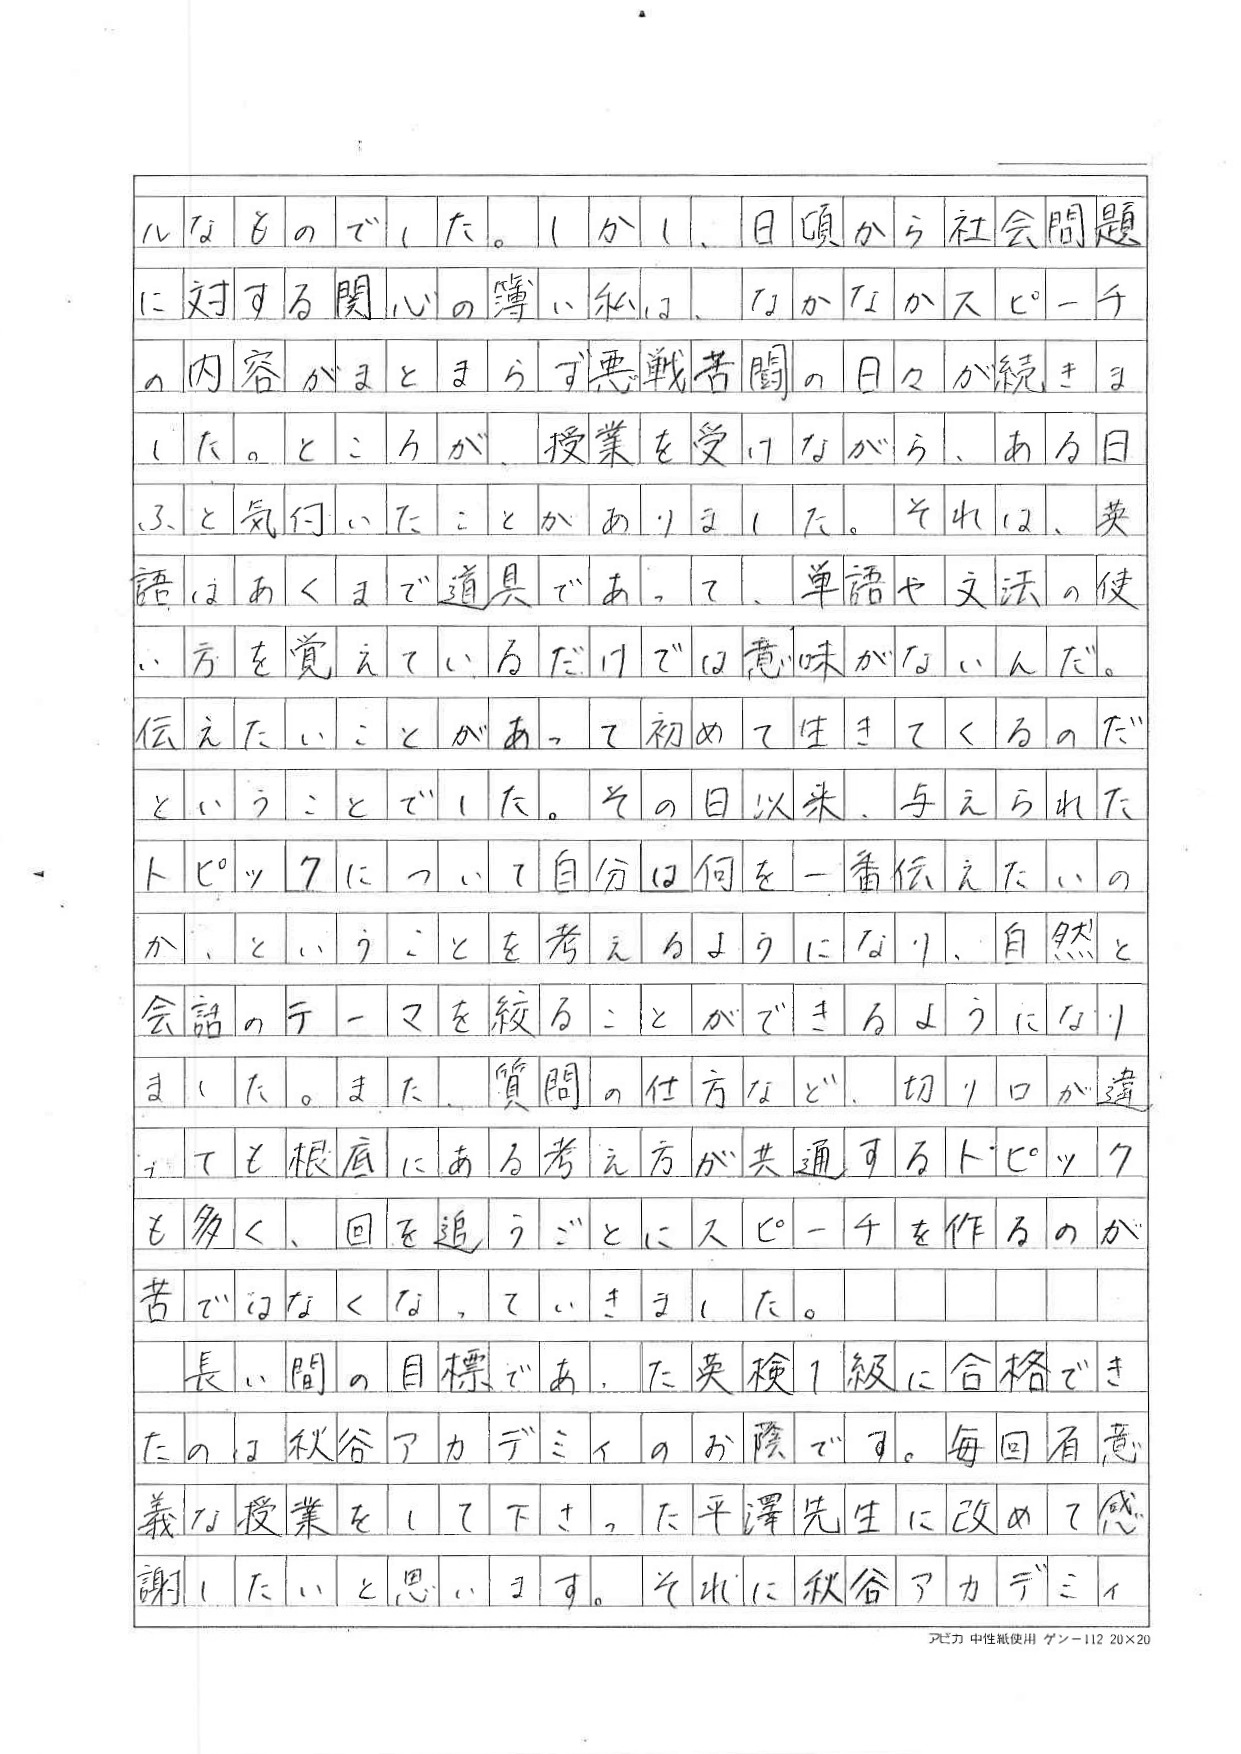 ルなものでした。しかし、日頃から社会問題
に対する関心の薄い私は、なかなかスピーチ
の内容がまとまらず悪戦苦闘の日々が続きま
した。ところが、授業を受けながら、ある日
ふと気付いたことがありました。それは、英
語はあくまで道具であって、単語や文法の使
い方を覚えているだけでは意味がないんだ。
伝えたいことがあって初めて生きてくるのだ
ということでした。その日以来、与えられた
トピックについて自分は何を一番伝えたいの
か、ということを考えるようになり、自然と
会話のテーマを絞ることができるようになり
ました。また、質問の仕方など、切り口が違
っても根底にある考え方が共通するトピック
も多く、回を追うごとにスピーチを作るのが
苦ではなくなっていきました。
長い間の目標であった英検1級に合格でき
たのは秋谷アカデミィのお陰です。毎回有意
義な授業をして下さった平澤先生に改めて感
謝したいと思います。それに秋谷アカデミィ
アピカ 中性紙使用 ゲンー112 20×20